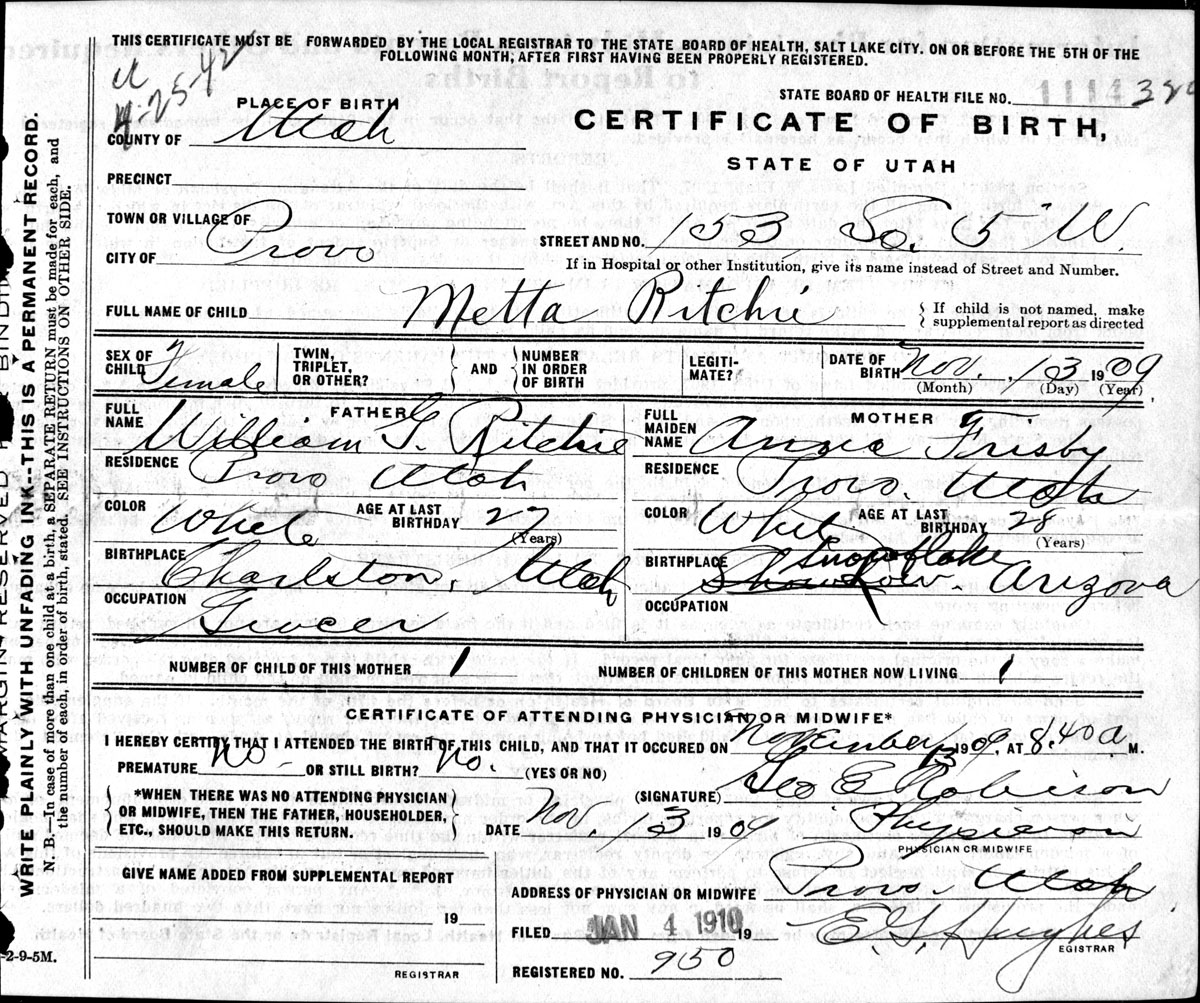 THIS CERTIFICATE MUST BE FORWARDED BY THE LOCAL REGISTRAR TO THE STATE BOARD OF HEALTH, SALT LAKE CITY. ON OR BEFORE THE 5TH OF THE
FOLLOWING MONTH, AFTER FIRST HAVING BEEN PROPERLY REGISTERED.
2542
STATE BOARD OF HEALTH FILE NO.
PLACE OF BIRTH
COUNTY OF Utah
CERTIFICATE OF BIRTH,
STATE OF UTAH
PRECINCT
TOWN OR VILLAGE OF
CITY OF Provo
STREET AND NO. 153 So. 5 W
If in Hospital or other Institution, give its name instead of Street and Number.
FULL NAME OF CHILD Metta Ritchie
{ If child is not named, make
supplemental report as directed
SEX OF CHILD Female
TWIN, TRIPLET, OR OTHER?
AND
NUMBER IN ORDER OF BIRTH
LEGITI-MATE?
DATE OF BIRTH Nov. 13 1909
(Month) (Day) (Year)
FATHER
FULL NAME William G. Ritchie
RESIDENCE Provo Utah
COLOR White
AGE AT LAST BIRTHDAY 27
(Years)
BIRTHPLACE Charlston, Utah
OCCUPATION Grucer
MOTHER
FULL MAIDEN NAME Annie Frisby
RESIDENCE Provo. Utah
COLOR White
AGE AT LAST BIRTHDAY 28
(Years)
BIRTHPLACE Snowflake Arizona
OCCUPATION
NUMBER OF CHILD OF THIS MOTHER 1
NUMBER OF CHILDREN OF THIS MOTHER NOW LIVING 1
CERTIFICATE OF ATTENDING PHYSICIAN OR MIDWIFE*
I HEREBY CERTIFY THAT I ATTENDED THE BIRTH OF THIS CHILD, AND THAT IT OCCURED ON November 13 1909, AT 8.40 a M.
PREMATURE No. OR STILL BIRTH? No. (YES OR NO)
(SIGNATURE) Geo E Robison
Physician
PHYSICIAN OR MIDWIFE
{ *WHEN THERE WAS NO ATTENDING PHYSICIAN
OR MIDWIFE, THEN THE FATHER, HOUSEHOLDER,
ETC., SHOULD MAKE THIS RETURN. }
DATE Nov. 13 1909
GIVE NAME ADDED FROM SUPPLEMENTAL REPORT
19
REGISTRAR
ADDRESS OF PHYSICIAN OR MIDWIFE Provo Utah
FILED JAN 4 1910 19
E. G. Hughes
EGISTRAR
REGISTERED NO. 950
WRITE PLAINLY WITH UNFADING INK.—THIS IS A PERMANENT RECORD.
N. B.—In case of more than one child at a birth, a SEPARATE RETURN must be made for each, and
the number of each, in order of birth, stated. SEE INSTRUCTIONS ON OTHER SIDE.
-2-9-5M.